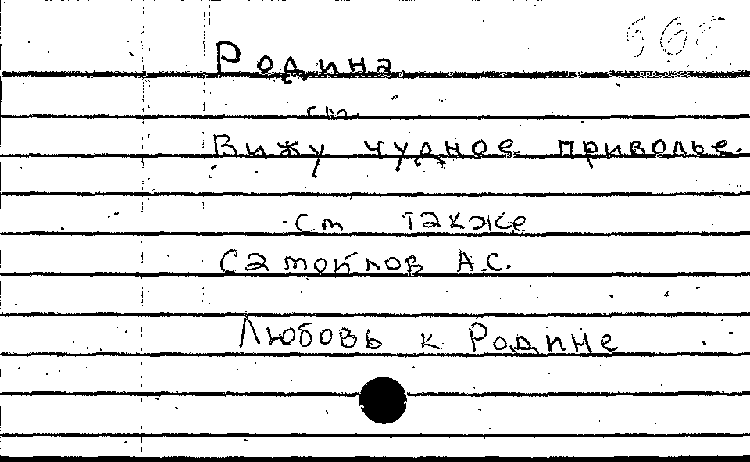 Родина
см.
Вижу чудное приволье.
см также
Самойлов А.С.
Любовь к Родине